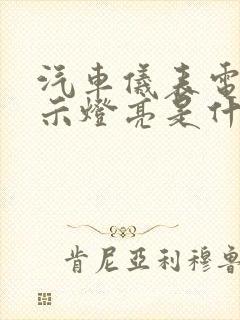 汽車儀表電
示燈亮是什
肯尼亞利穆魯